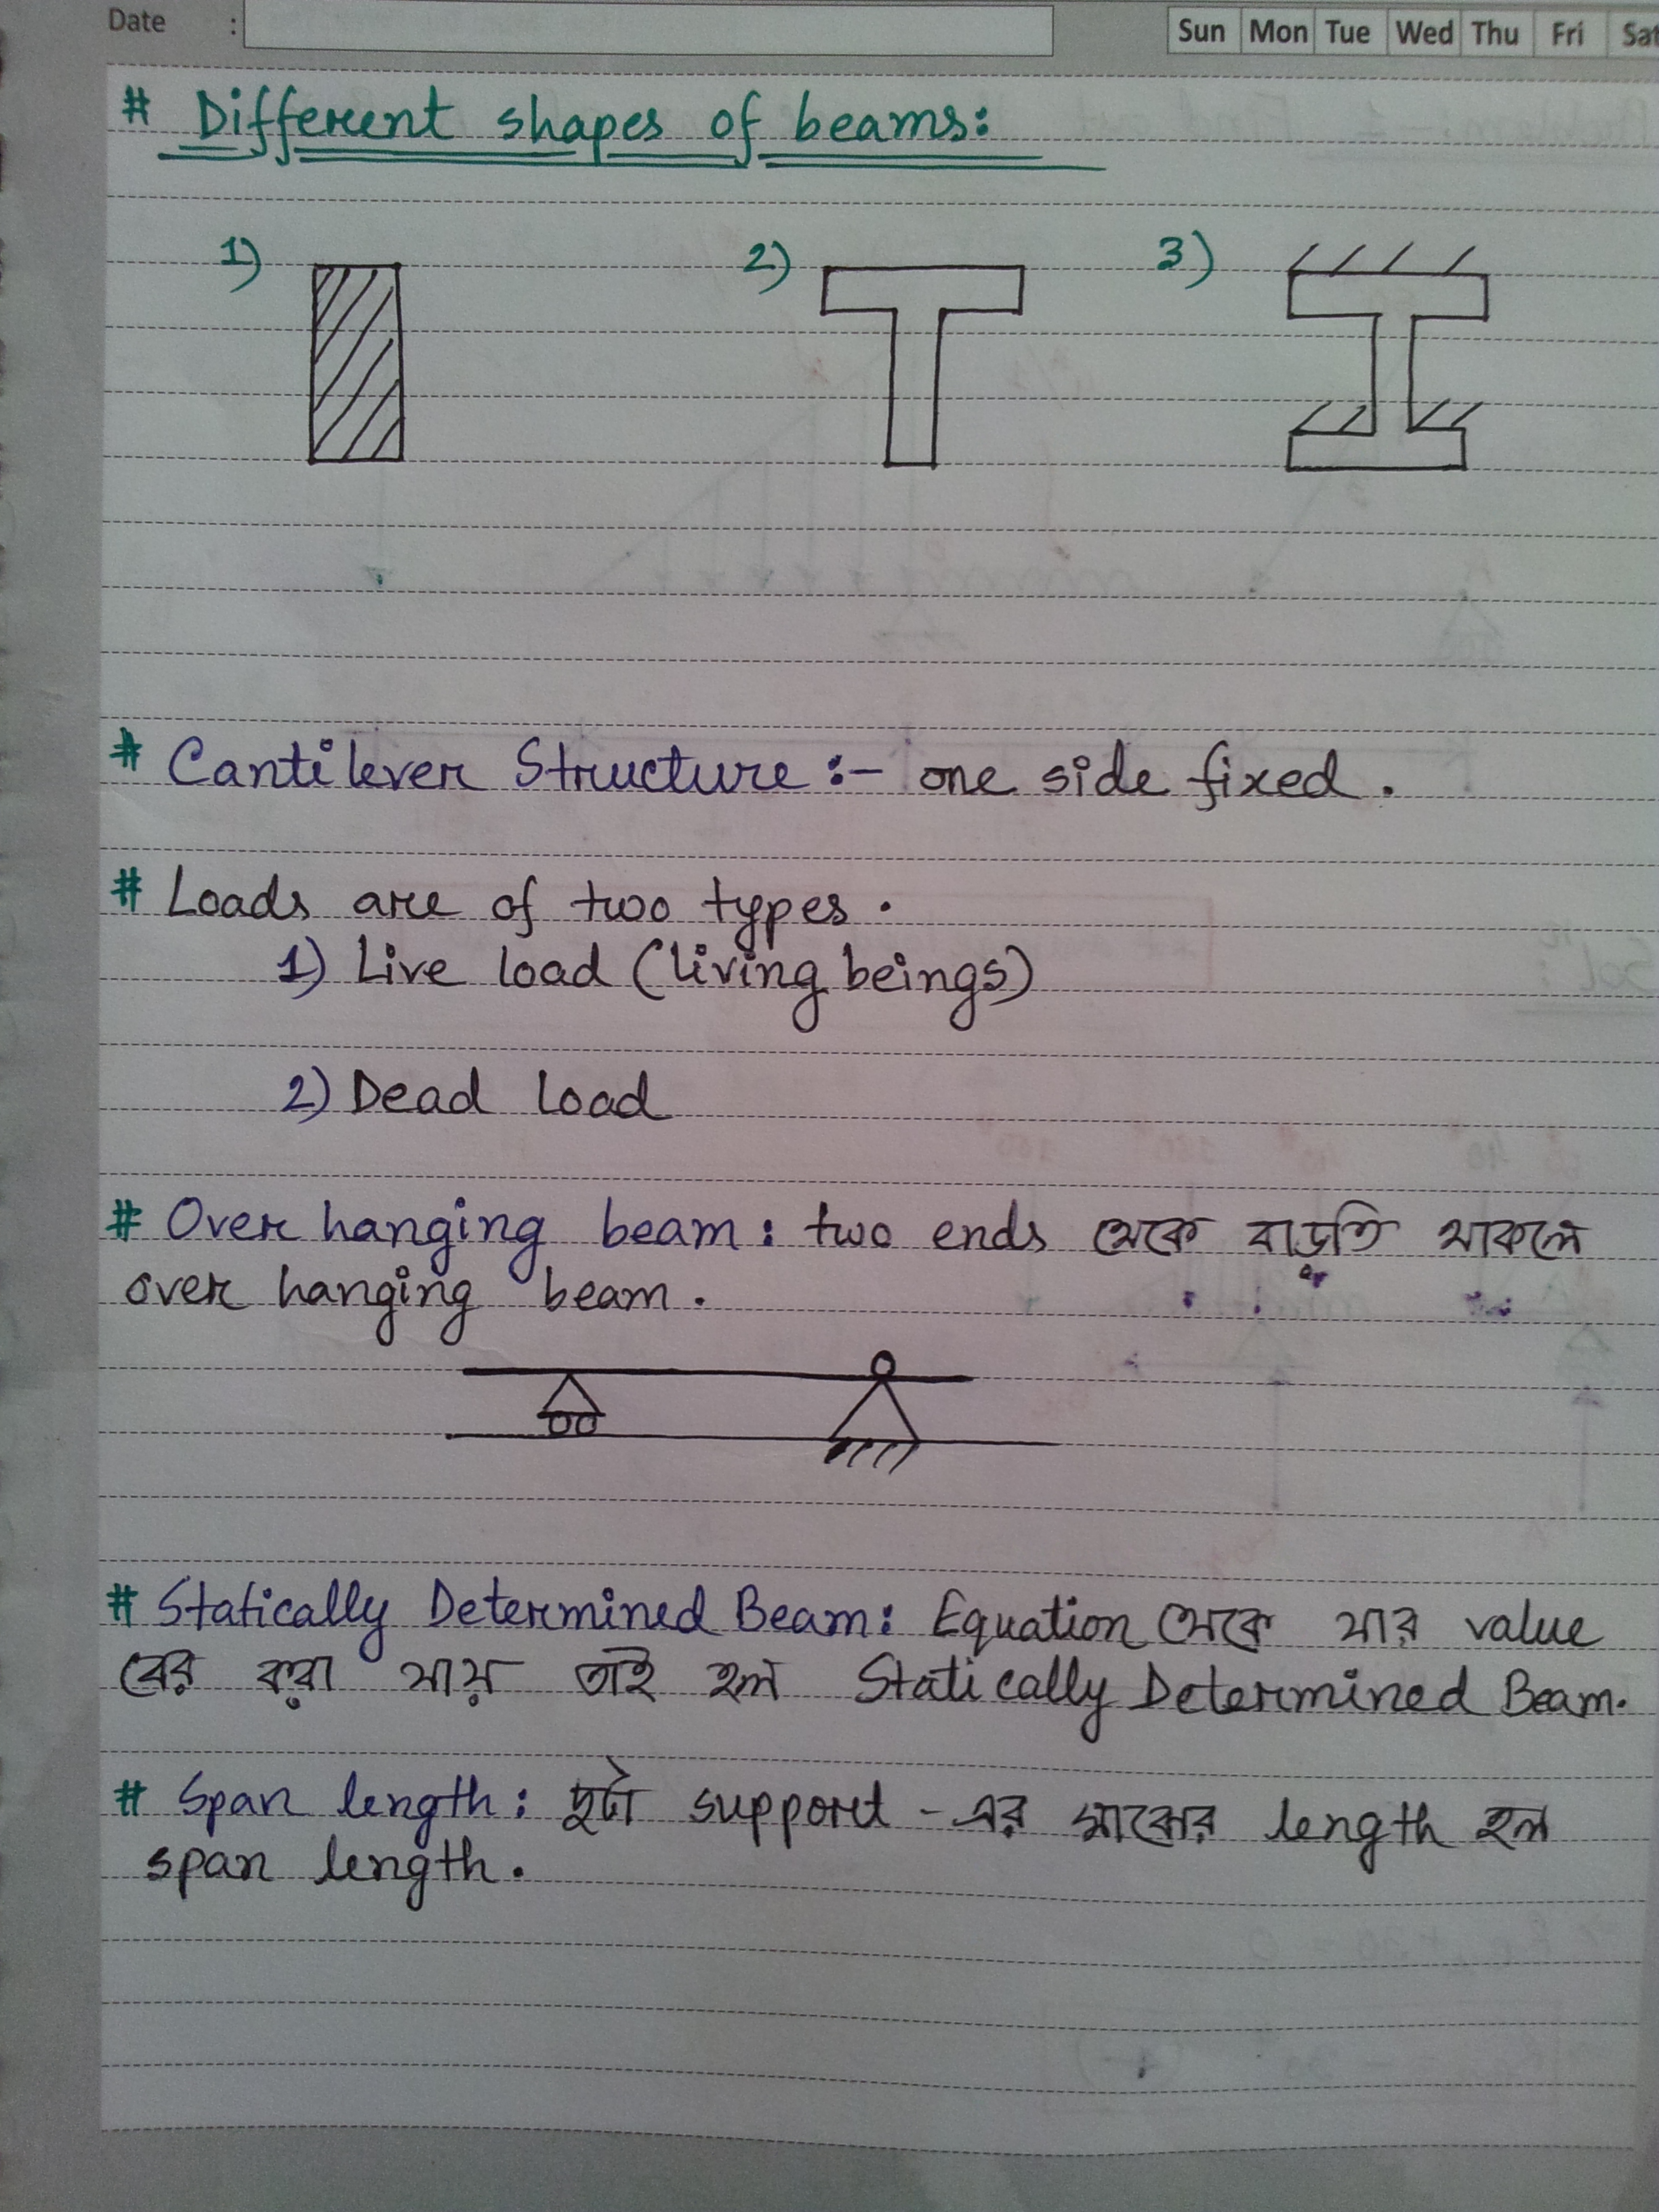 Date :
Sun Mon Tue Wed Thu Fri Sat
# Different shapes of beams:
1) 2) 3)
# Cantilever Structure :- one side fixed.
# Loads are of two types.
1) Live load (living beings)
2) Dead load
# Over hanging beam: two ends থেকে বাড়তি থাকলে
over hanging beam.
# Statically Determined Beam: Equation থেকে যার value
বের করা যায় তাই হল Statically Determined Beam.
# Span length: দুটো support -এর মাঝের length হল
span length.